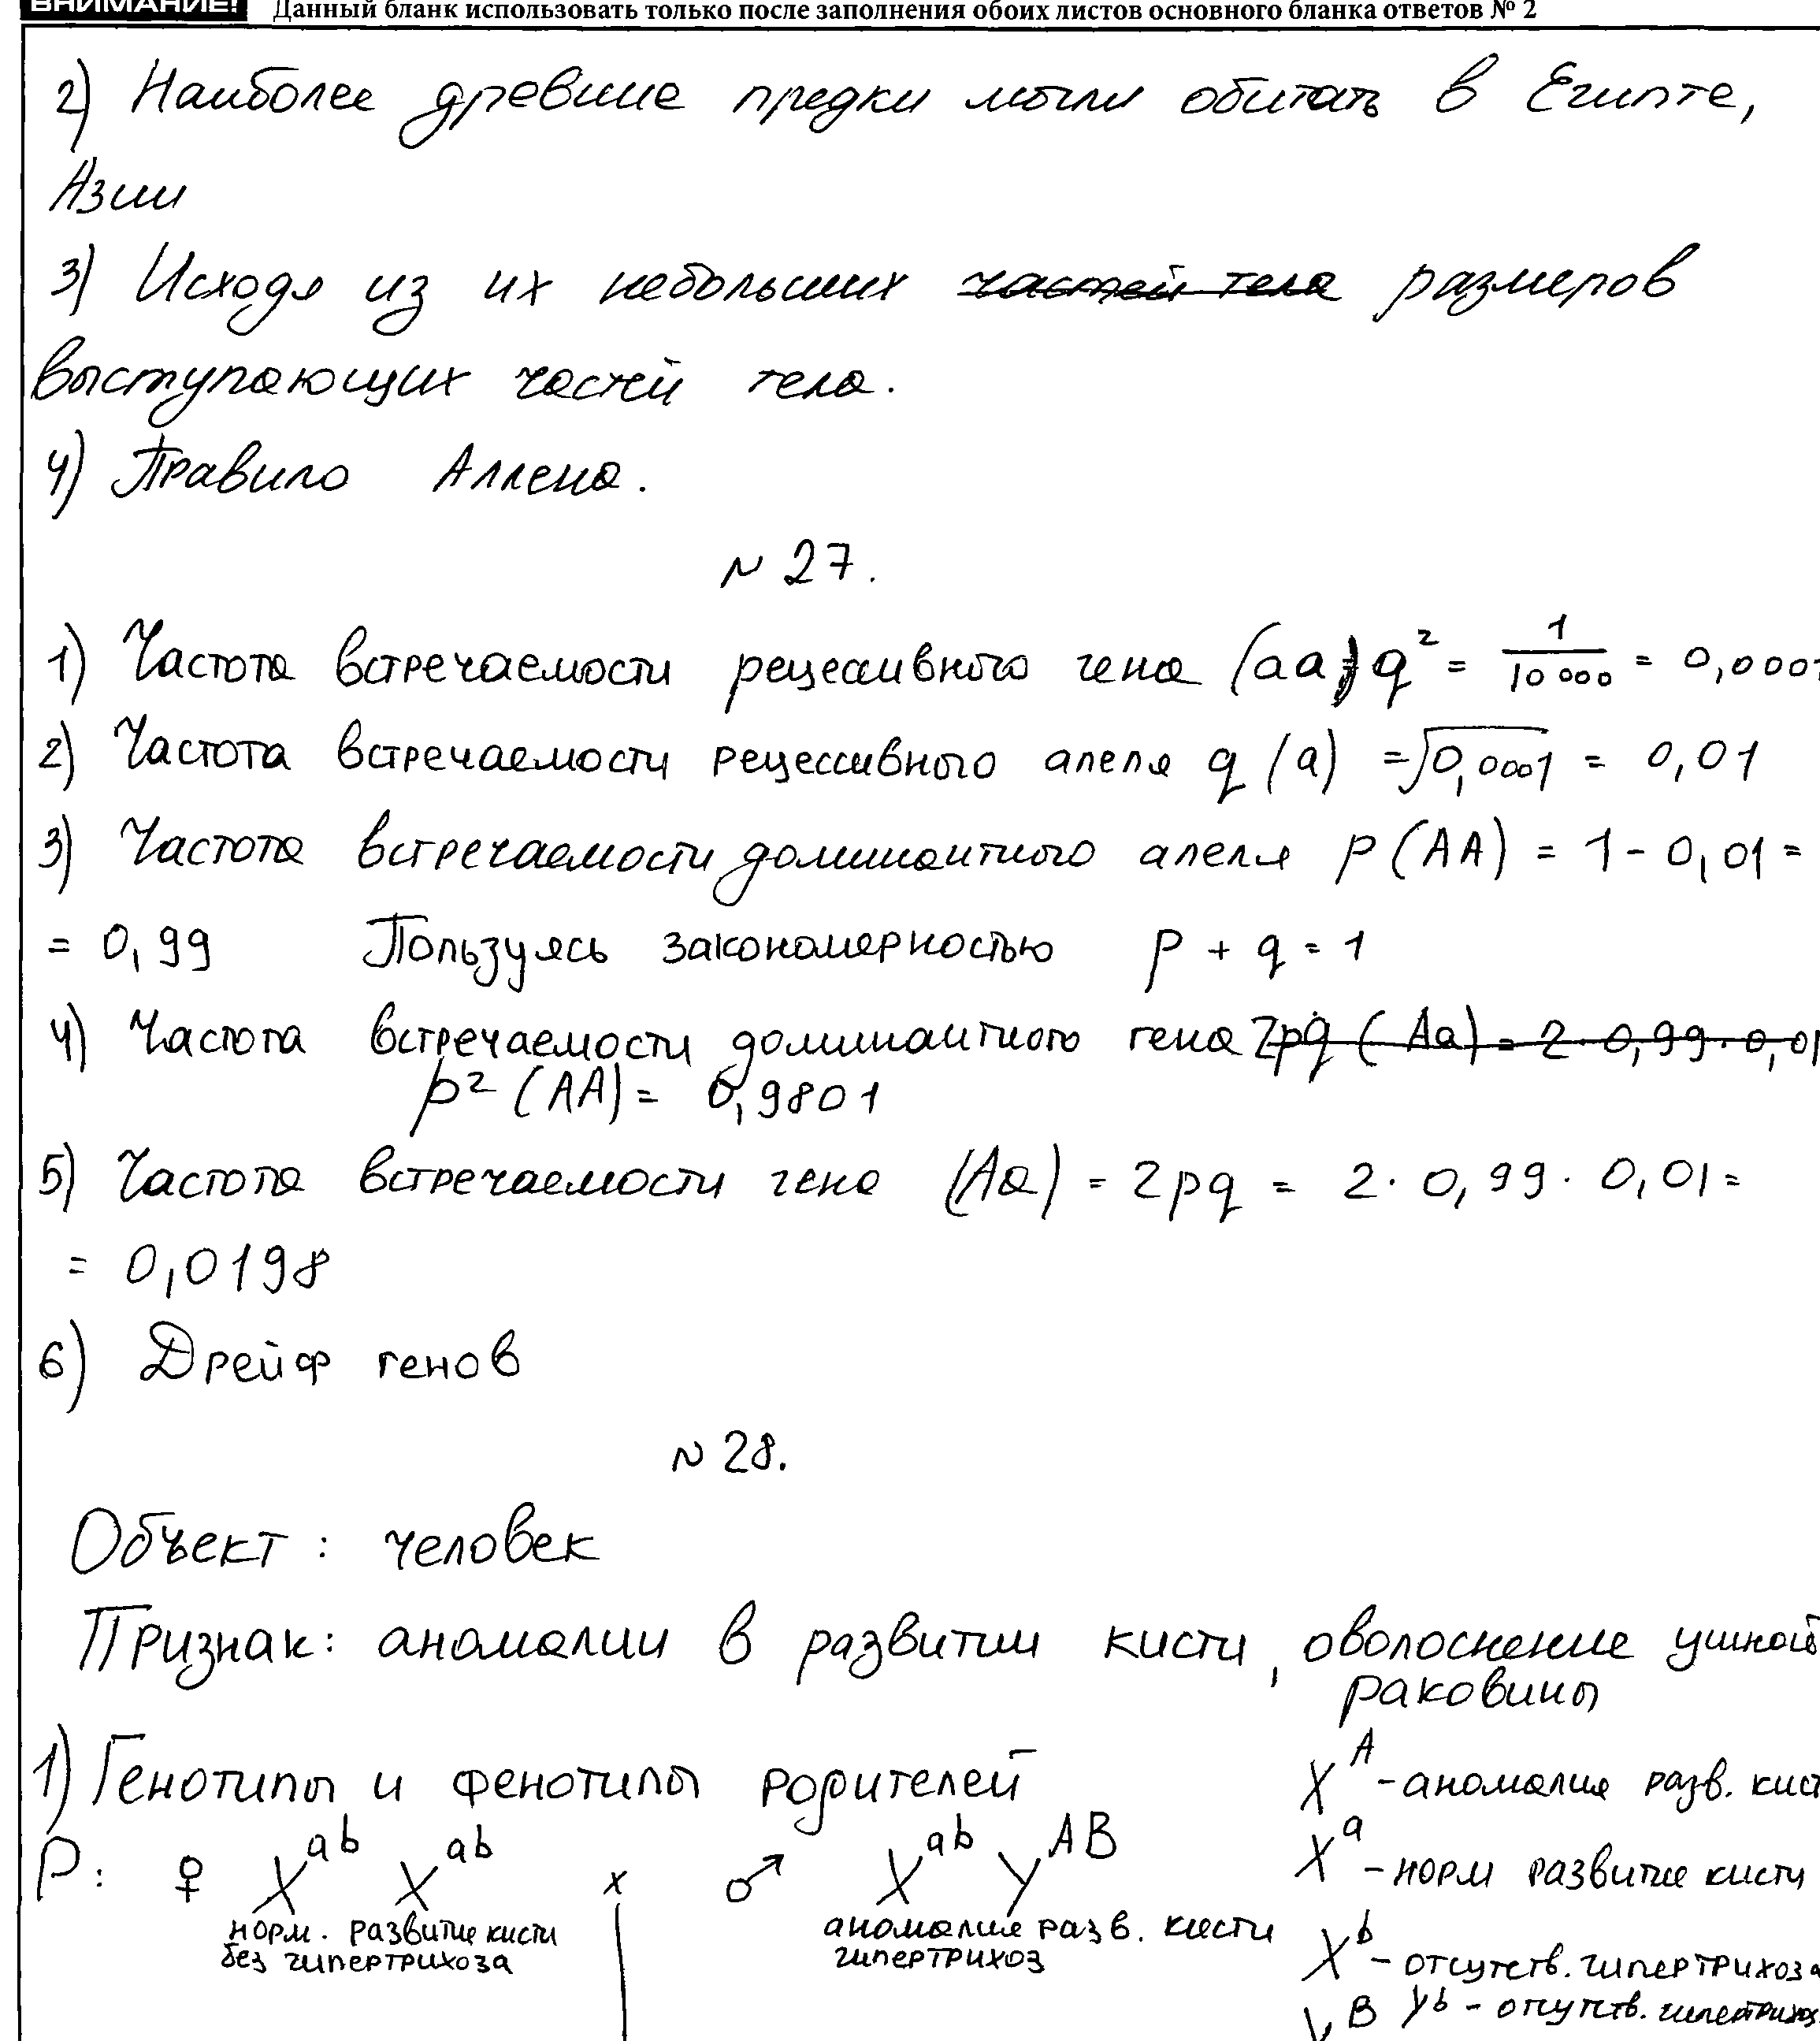 ВНИМАНИЕ! Данный бланк использовать только после заполнения обоих листов основного бланка ответов № 2
2) Наиболее древние предки могли обитать в Египте,
Азии
3) Исходя из их небольших частей тела размеров
выступающих частей тела.
4) Правило Аллена.
№ 27.
1) Частота встречаемости рецессивного гена (aa) q² = 1/10 000 = 0,0001
2) Частота встречаемости рецессивного алеля q (a) = √0,0001 = 0,01
3) Частота встречаемости доминантного алеля p (AA) = 1 - 0,01 =
= 0,99 Пользуясь закономерностью p + q = 1
4) Частота встречаемости доминантного гена 2pq (Aa) = 2 · 0,99 · 0,01
p² (AA) = 0,9801
5) Частота встречаемости гена (Aa) = 2pq = 2 · 0,99 · 0,01 =
= 0,0198
6) Дрейф генов
№ 28.
Объект : человек
Признак: аномалии в развитии кисти, оволоснение ушной
раковины
1) Генотипы и фенотипы родителей X^A - аномалия разв. кист
P: ♀ X^ab X^ab x ♂ X^ab Y^AB X^a - норм развитие кисти
норм. развитие кисти аномалия разв. кисти
без гипертрихоза гипертрихоз X^b - отсутств. гипертрихоза
Y^b - отсутств. гипертрихоз